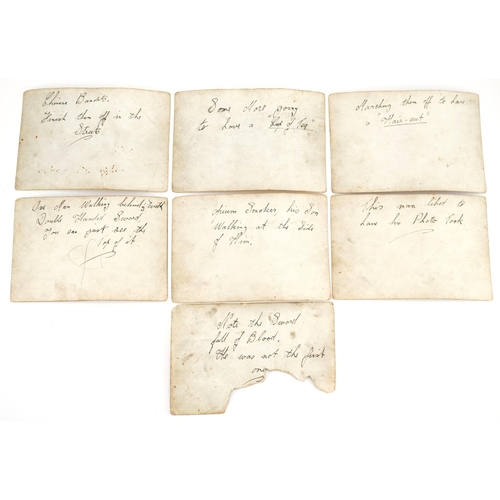 Chinese Bandits.
Finish them off in the
Streets
Some More going
to have a "Cup of Tea"
Marching them off to have
a "Hair-cut"
One Man Walking behind with
Double Handed Sword
You can just see the
Top of it
Opium Smoker, his Son
Walking at the Side
of Him.
This man liked to
have his Photo Took
Note the Sword
full of Blood.
He was not the first
one